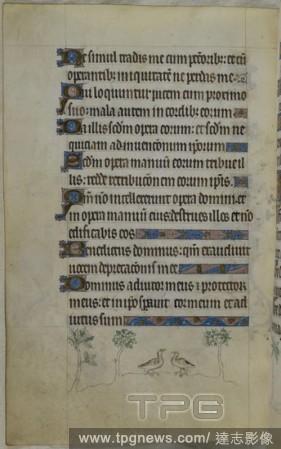 Ne simul tradas me cum pctōrib; et cū
operantib; iniquitatē ne perdas me.
Qui loquuntur pacem cum proximo
suo: mala autem in cordib; eorum
Da illis scdm opera eorum: et scdm ne
quiciam adinuencionum ipsorum
Scdm opera manuū eorum tribue il
lis: redde retribucōnem eorum ipīs.
Qm̄ nō intellexerunt opera domini et
in opera manuū eius: destrues illos et nō
edificabis eos
Benedictus dominus: qm̄ exaudiuit
uocem deprecacōnis mee
Dominus adiutor meus et protector
meus: et in ip̄o sperauit cor meum et ad
iutus sum
TPG
www.tpgnews.com/ 達志影像